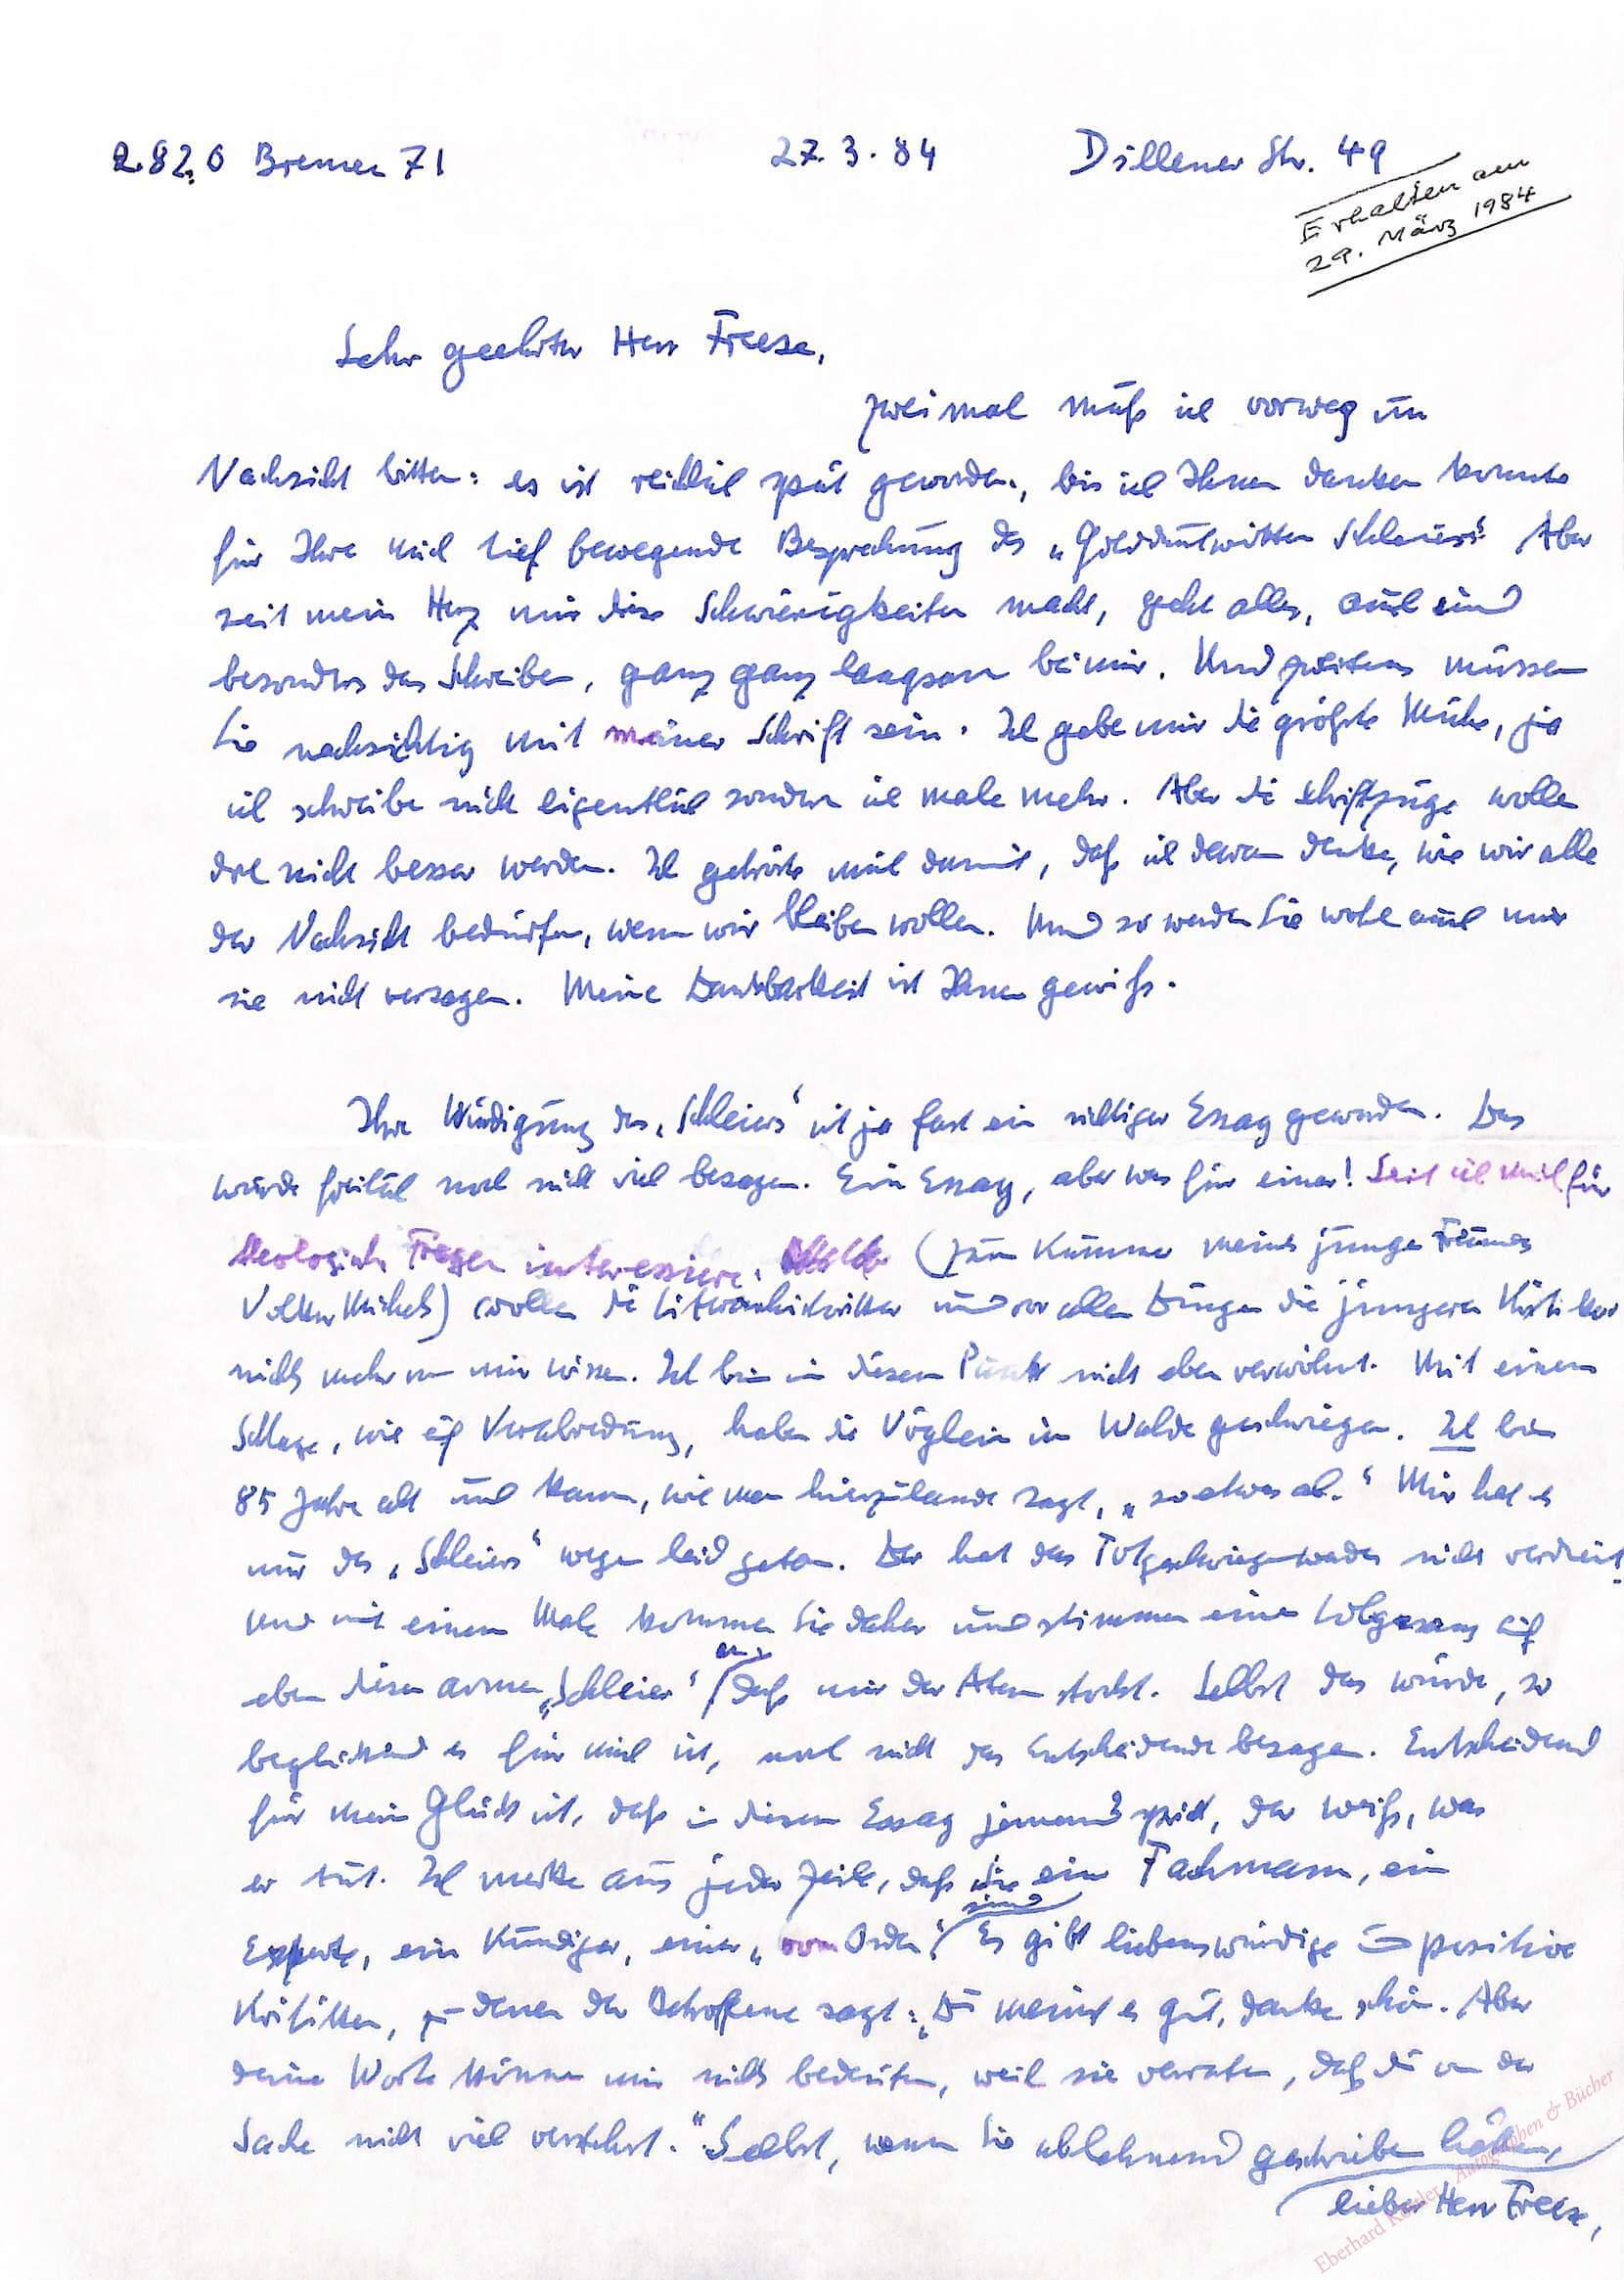 2820 Bremen 71 27.3.84 Dillener Str. 49
Erhalten am
29. März 1984
Sehr geehrter Herr Freese,
zweimal muß ich vorweg um
Nachsicht bitten: es ist reichlich spät geworden, bis ich Ihnen danken konnte
für Ihre mich tief bewegende Besprechung des „Golddurchwirkten Schleiers“. Aber
seit mein Herz mir diese Schwierigkeiten macht, geht alles, auch und
besonders das Schreiben, ganz ganz langsam bei mir. Und zweitens müssen
Sie nachsichtig mit meiner Schrift sein. Ich gebe mir die größte Mühe, ja
ich schreibe nicht eigentlich sondern ich male mehr. Aber die Schriftzüge wollen
doch nicht besser werden. Ich getröste mich damit, daß ich daran denke, wie wir alle
der Nachsicht bedürfen, wenn wir bleiben wollen. Und so werden Sie wohl auch mir
sie nicht versagen. Meine Dankbarkeit ist Ihnen gewiß.
Ihre Würdigung des „Schleiers“ ist ja fast ein richtiger Essay geworden. Das
würde freilich noch nicht viel besagen. Ein Essay, aber was für einer! Seit ich mich für
theologische Fragen interessiere, (zum Kummer meines jungen Freundes
Volker Michels) wollen die Literaturkritiker und vor allen Dingen die jüngeren Kritiker
nichts mehr von mir wissen. Ich bin in diesem Punkt nicht eben verwöhnt. Mit einem
Schlage, wie auf Verabredung, haben die Vöglein im Walde geschwiegen. Ich bin
85 Jahre alt und kann, wie man hierzulande sagt, „so etwas ab.“ Mir hat es
nur des „Schleiers“ wegen leid getan. Der hat das Totgeschwiegenwerden nicht verdient.
Und mit einem Male kommen Sie daher und stimmen einen Lobgesang auf
eben diesen armen „Schleier“ an, daß mir der Atem stockt. Selbst das würde, so
beglückend es für mich ist, noch nicht das Entscheidende besagen. Entscheidend
für mein Glück ist, daß in diesem Essay jemand spricht, der weiß, was
er tut. Ich merke aus jeder Zeile, daß Sie ein Fachmann, ein
Experte, ein Kundiger, einer „vom Orden“ sind. Es gibt liebenswürdige und positive
Kritiken, zu denen der Betroffene sagt: „Du meinst es gut, danke schön. Aber
deine Worte können mir nichts bedeuten, weil sie verraten, daß du von der
Sache nicht viel verstehst.“ Selbst, wenn Sie ablehnend geschrieben hätten,
lieber Herr Freese,
Eberhard Köstler Autographen & Bücher